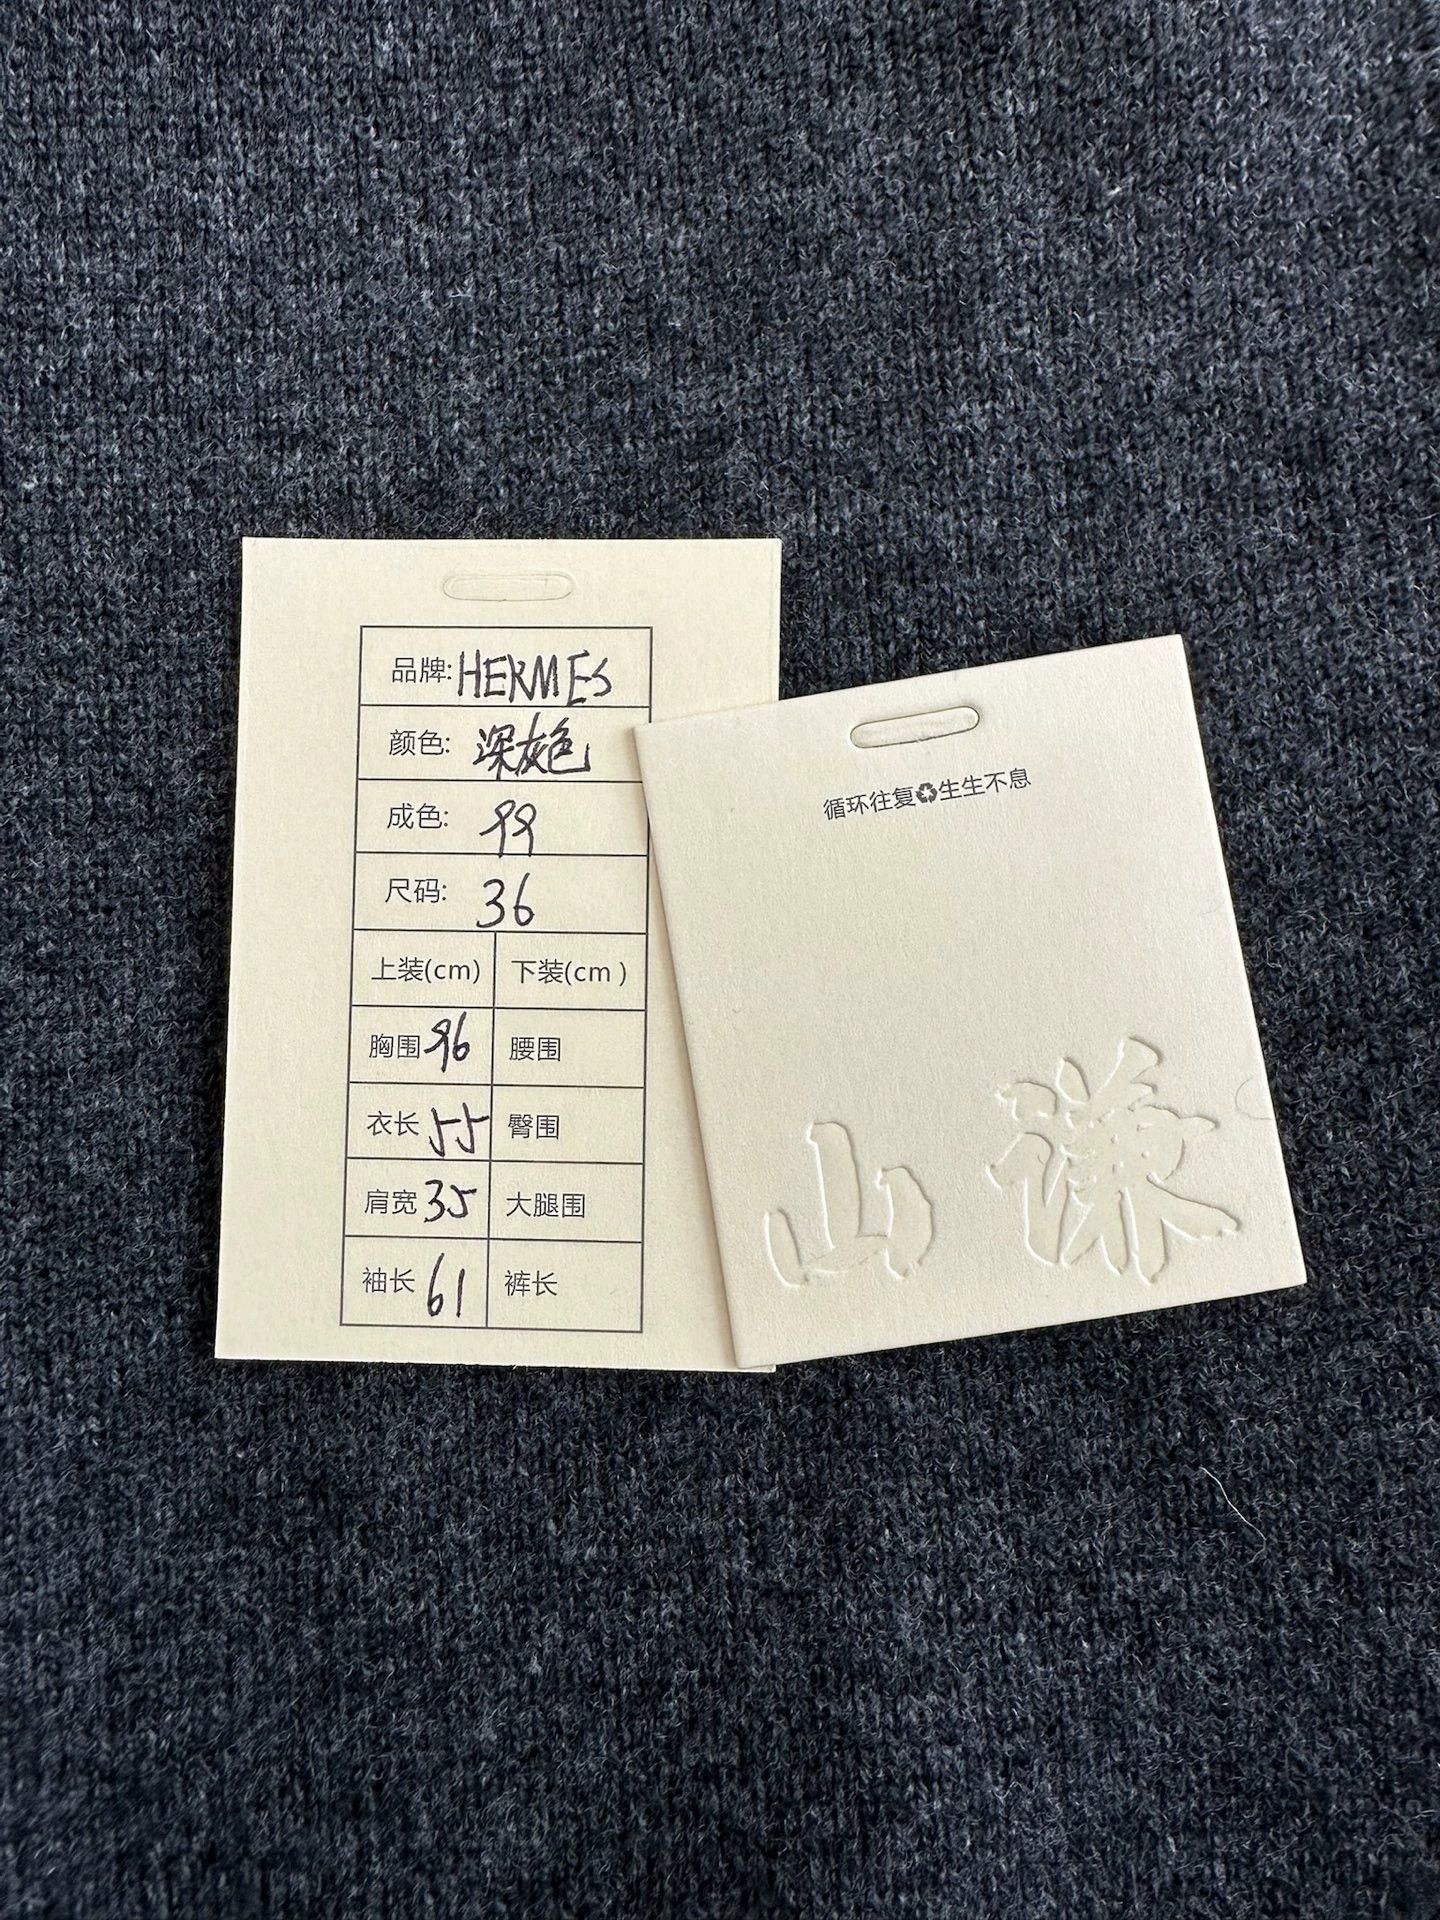 品牌: HERMES
颜色: 深灰色
成色: 99
尺码: 36
上装(cm) 下装(cm)
胸围 96 腰围
衣长 55 臀围
肩宽 35 大腿围
袖长 61 裤长
循环往复♻生生不息
山谦